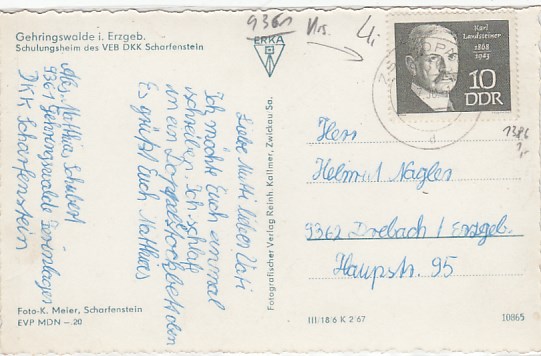 Gehringswalde i. Erzgeb.
Schulungsheim des VEB DKK Scharfenstein
9361
ERKA
Karl
Landsteiner
1868
1943
10
DDR
1386
Liebe Mutti lieber Vati
Ich möchte Euch einmal
schreiben. Ich schlafe
in ein Doppelstockbett oben
Es grüßt Euch Matthias
Abs. Matthias Schubert
9361 Gehringswalde Ferienlager
DKK Scharfenstein
Fotografischer Verlag Reinh. Kallmer, Zwickau Sa.
Herr
Helmut Nagler
9362 Drebach / Erzgeb.
Haupstr. 95
Foto-K. Meier, Scharfenstein
EVP MDN -.20
III/18/6 K 2/67
10865